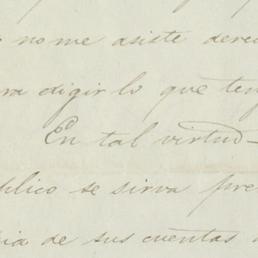 no me asiste derec
ra digir lo que ten
En tal virtud-
plico se sirva pre
ia de sus cuentas